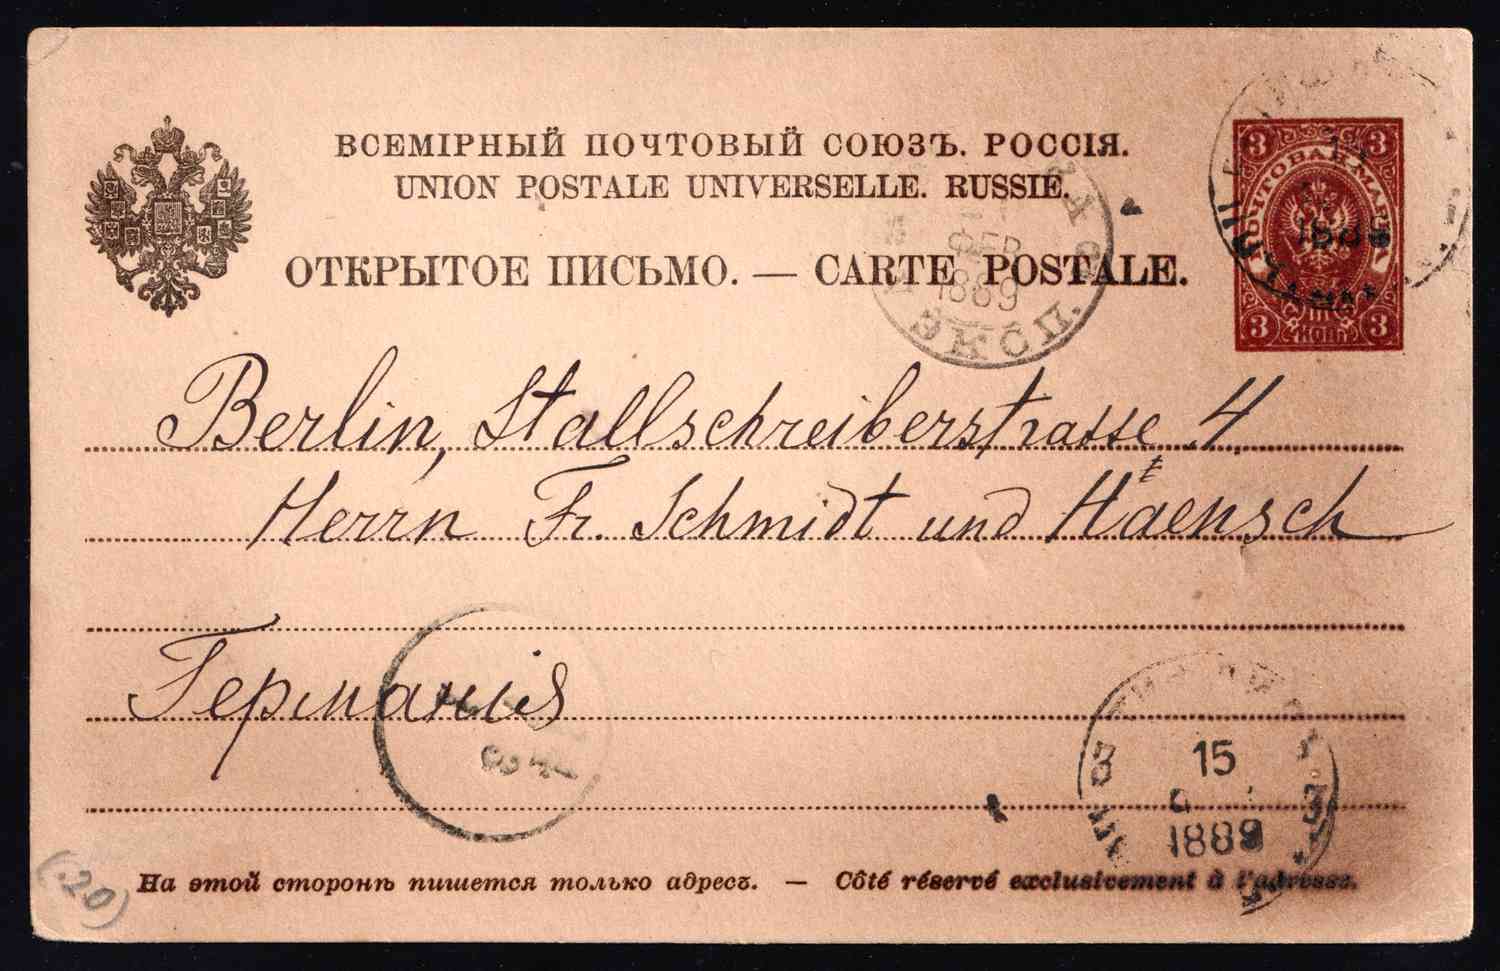 ВСЕМІРНЫЙ ПОЧТОВЫЙ СОЮЗЪ. РОССІЯ.
UNION POSTALE UNIVERSELLE. RUSSIE.
ОТКРЫТОЕ ПИСЬМО. — CARTE POSTALE.
3 3
ПОЧТОВАЯ МАРКА
3 КОП. 3
ФЕВ
1889
ЭКСП.
1889
Berlin, Stallschreiberstrasse 4
Herrn Fr. Schmidt und Haensch
Германія
15
1889
На этой сторонѣ пишется только адресъ. — Côté réservé exclusivement à l'adresse.
(.20)